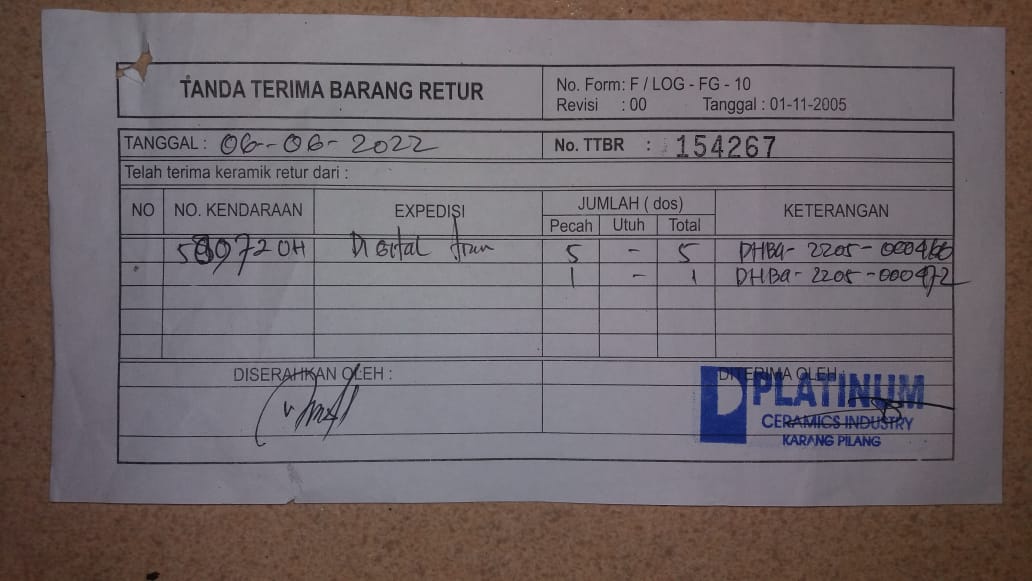 TANDA TERIMA BARANG RETUR
No. Form: F / LOG - FG - 10
Revisi : 00 Tanggal : 01-11-2005
TANGGAL : 06-06-2022 No. TTBR : 154267
Telah terima keramik retur dari :
NO NO. KENDARAAN EXPEDISI JUMLAH ( dos) KETERANGAN
Pecah Utuh Total
Digital 5 - 5 DHBa-2205-000466
1 - 1 DHBa-2205-000472
DISERAHKAN OLEH : DITERIMA OLEH :
PLATINUM
CERAMICS INDUSTRY
KARANG PILANG